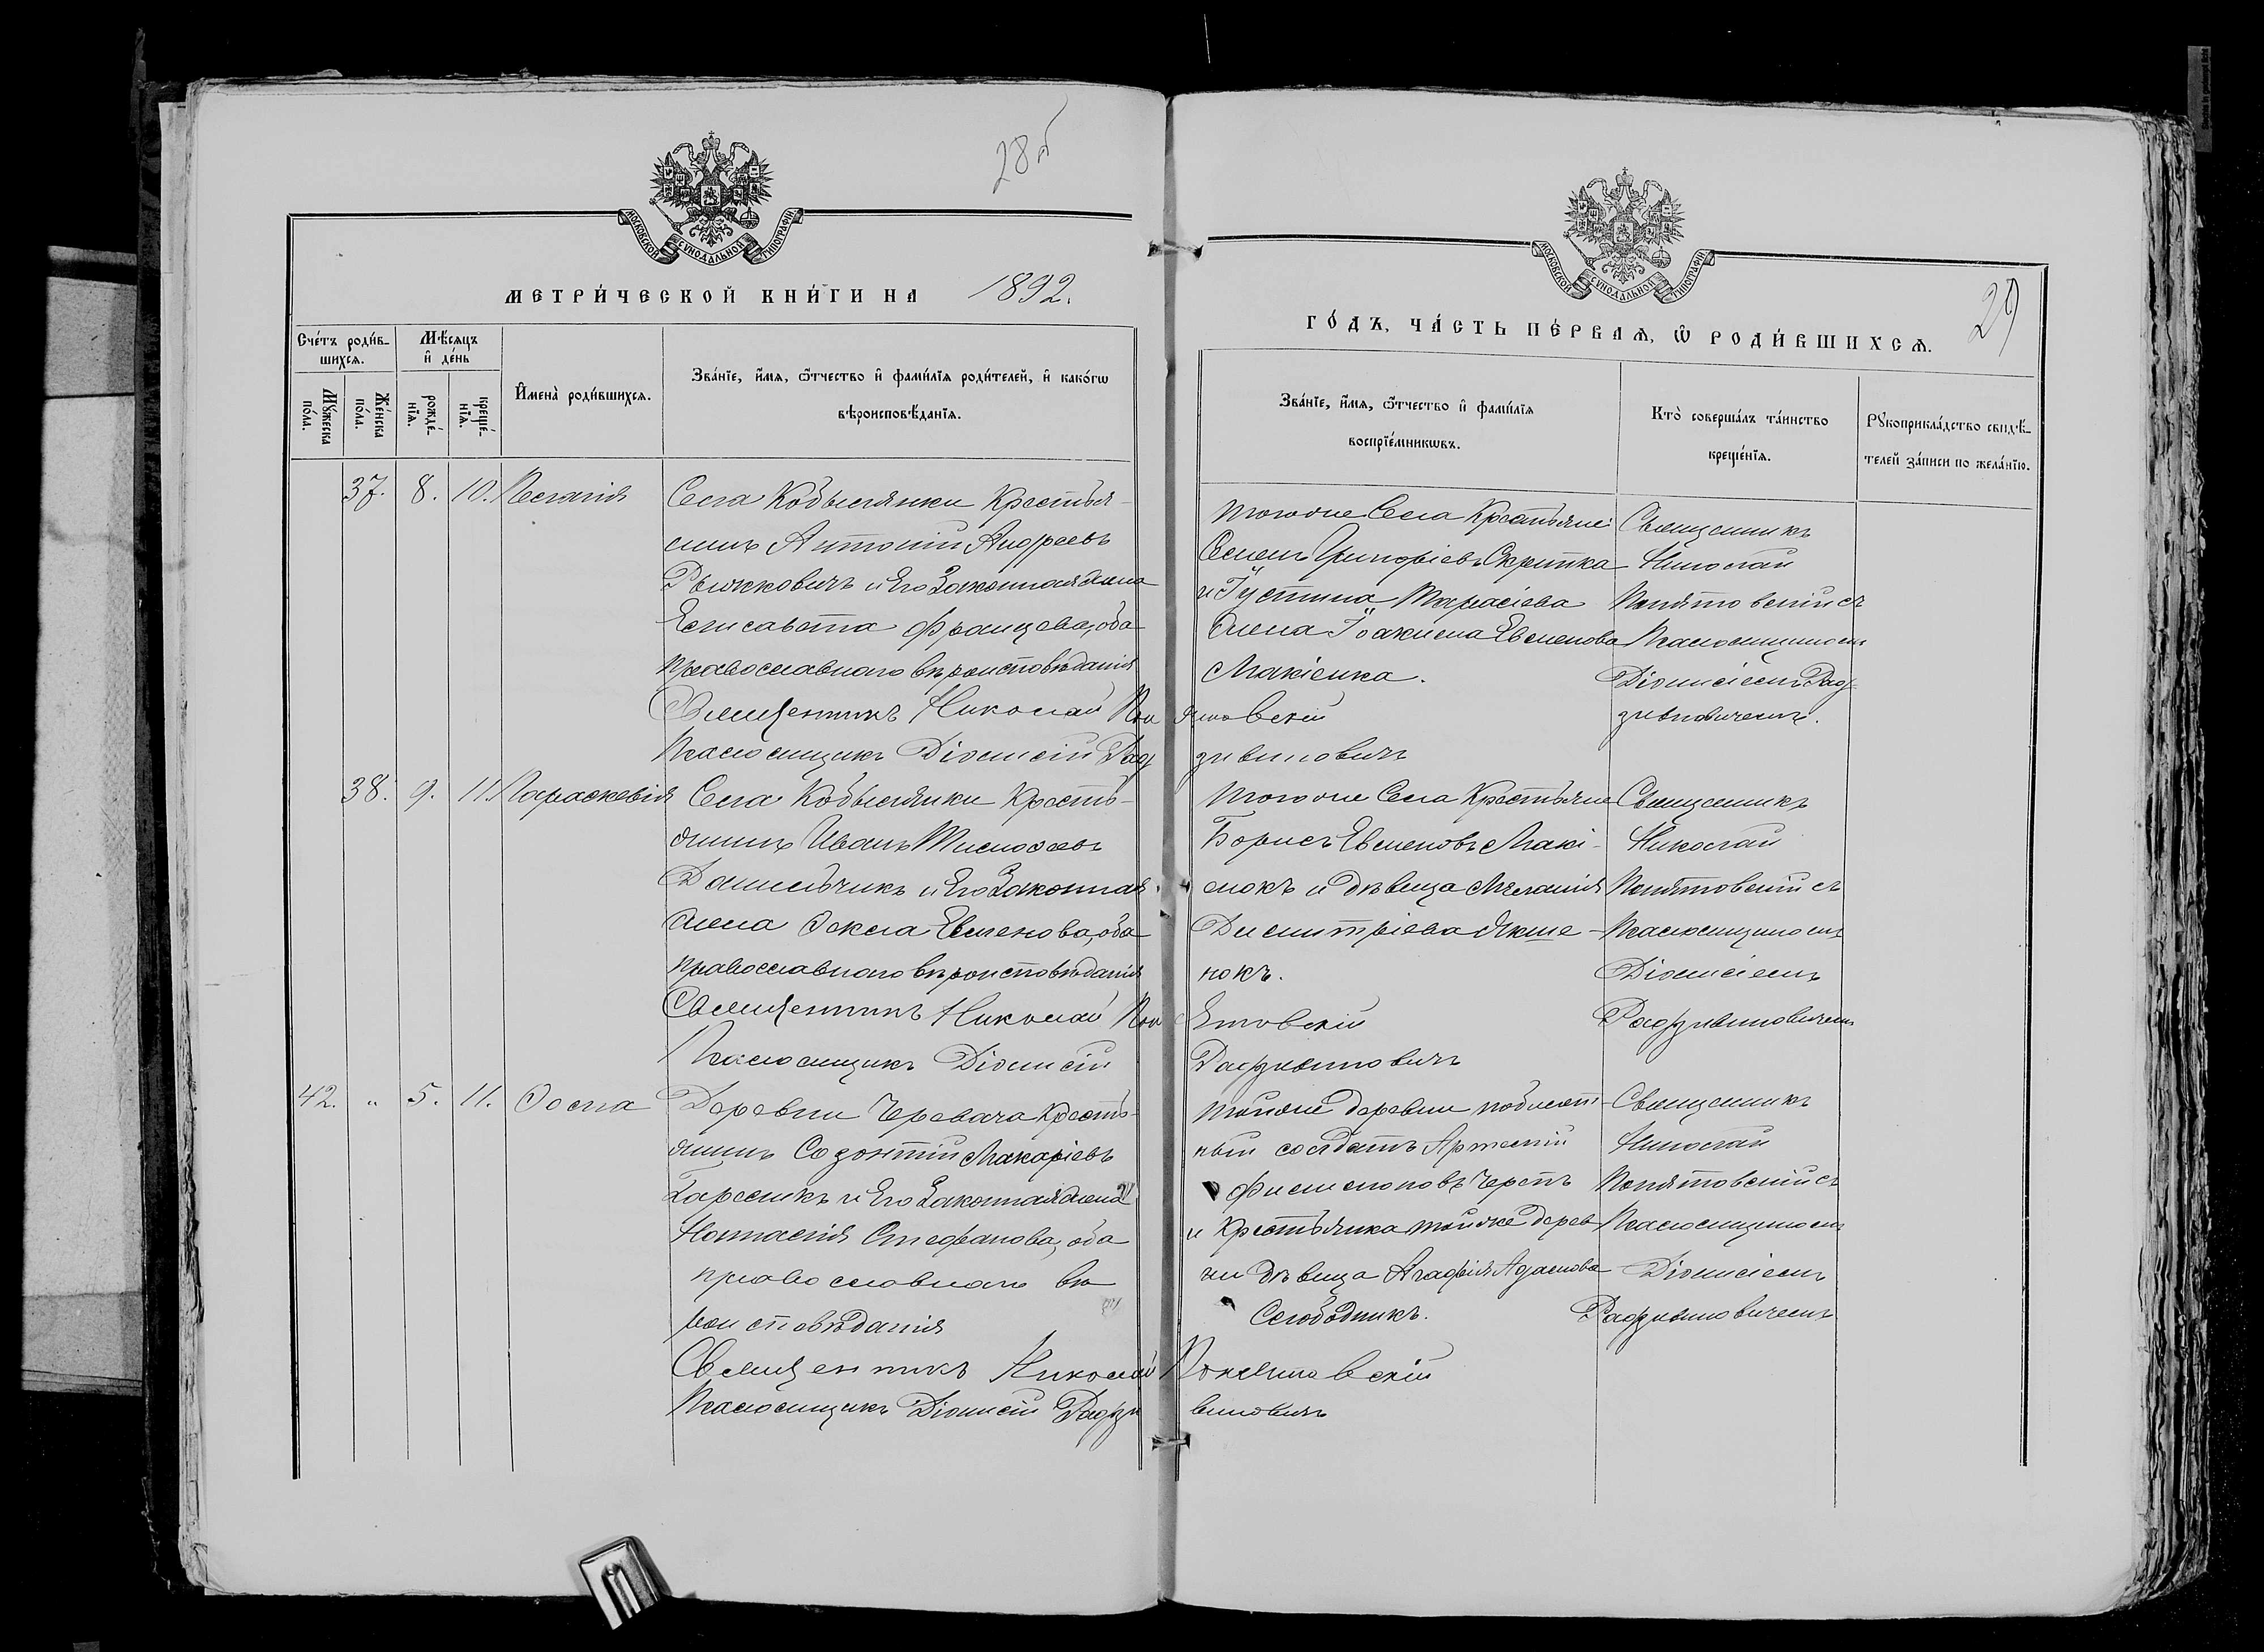 28 об
МОСКОВСКОЙ СѴНОДАЛЬНОЙ ТИПОГРАФІИ
МЕТРИ́ЧЕСКОЙ КНИ́ГИ НА 1892.
Сче́тъ роди́в-
шихсѧ.
Мѣ́сѧцъ
и҆ де́нь
Мꙋ́жеска
по́ла.
Же́нска
по́ла.
рожде́-
нїѧ.
креще́-
нїѧ.
И҆мена̀ роди́вшихсѧ.
Зва́нїе, и҆́мѧ, ѻ҆́тчество и҆ фами́лїѧ роди́телей, и҆ како́гѡ
вѣроисповѣ́данїѧ.
37. 8. 10. Пелагія
Села Кобылянки Крестья-
нинъ Антоній Андреевъ
и Его Законная жена
Елисавета Францева, оба
православнаго вѣроисповѣданія
Священникъ Николай Понятовскій
Псаломщикъ Діонисій Радзивиновичъ
38. 9. 11. Параскевія
Села Кобылянки Кресть-
янинъ Иванъ Тимофеевъ
Данильчикъ и Его Законная
жена Фекла Евменова, оба
православнаго вѣроисповѣданія
Священникъ Николай Понятовскій
Псаломщикъ Діонисій Радзивиновичъ
42. „ 5. 11. Фома
Деревни Черевача Кресть-
янинъ Созонтій Макаріевъ
и Его Законная жена
Стефанова, оба
православнаго вѣ-
роисповѣданія
Священникъ Николай Понятовскій
Псаломщикъ Діонисій Радзивиновичъ
29
МОСКОВСКОЙ СѴНОДАЛЬНОЙ ТИПОГРАФІИ
ГО́ДЪ, ЧА́СТЬ ПЕ́РВАѦ, Ѽ РОДИ́ВШИХСѦ.
Зва́нїе, и҆́мѧ, ѻ҆́тчество и҆ фами́лїѧ
воспрїе́мникѡвъ.
Кто̀ соверша́лъ та́инство
креще́нїѧ.
Рꙋкоприкла́дство свидѣ́-
телей за́писи по жела́нїю.
Тогоже Села Крестьяне
Семенъ Григоріевъ Скрипка
и Іустина Тарасіева
жена Іоакима Евменова
Макіенка.
Священникъ
Николай
Понятовскій съ
Псаломщикомъ
Діонисіемъ Рад-
зивиновичемъ.
Тогоже Села Крестьяне
Борисъ Евменовъ Макі-
енокъ и дѣвица Меланія
Димитріева Якше-
нокъ.
Священникъ
Николай
Понятовскій съ
Псаломщикомъ
Діонисіемъ
Радзивиновичемъ
Тойже деревни
солдатъ Артемій
Филимоновъ
и Крестьянка тойже дерев-
ни дѣвица Агафія Адамова
Слободникъ.
Священникъ
Николай
Понятовскій съ
Псаломщикомъ
Діонисіемъ
Радзивиновичемъ